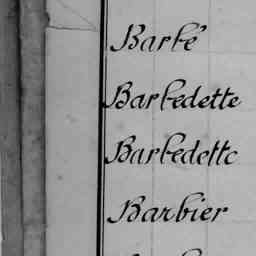 Barbé
Barbedette
Barbedette
Barbier